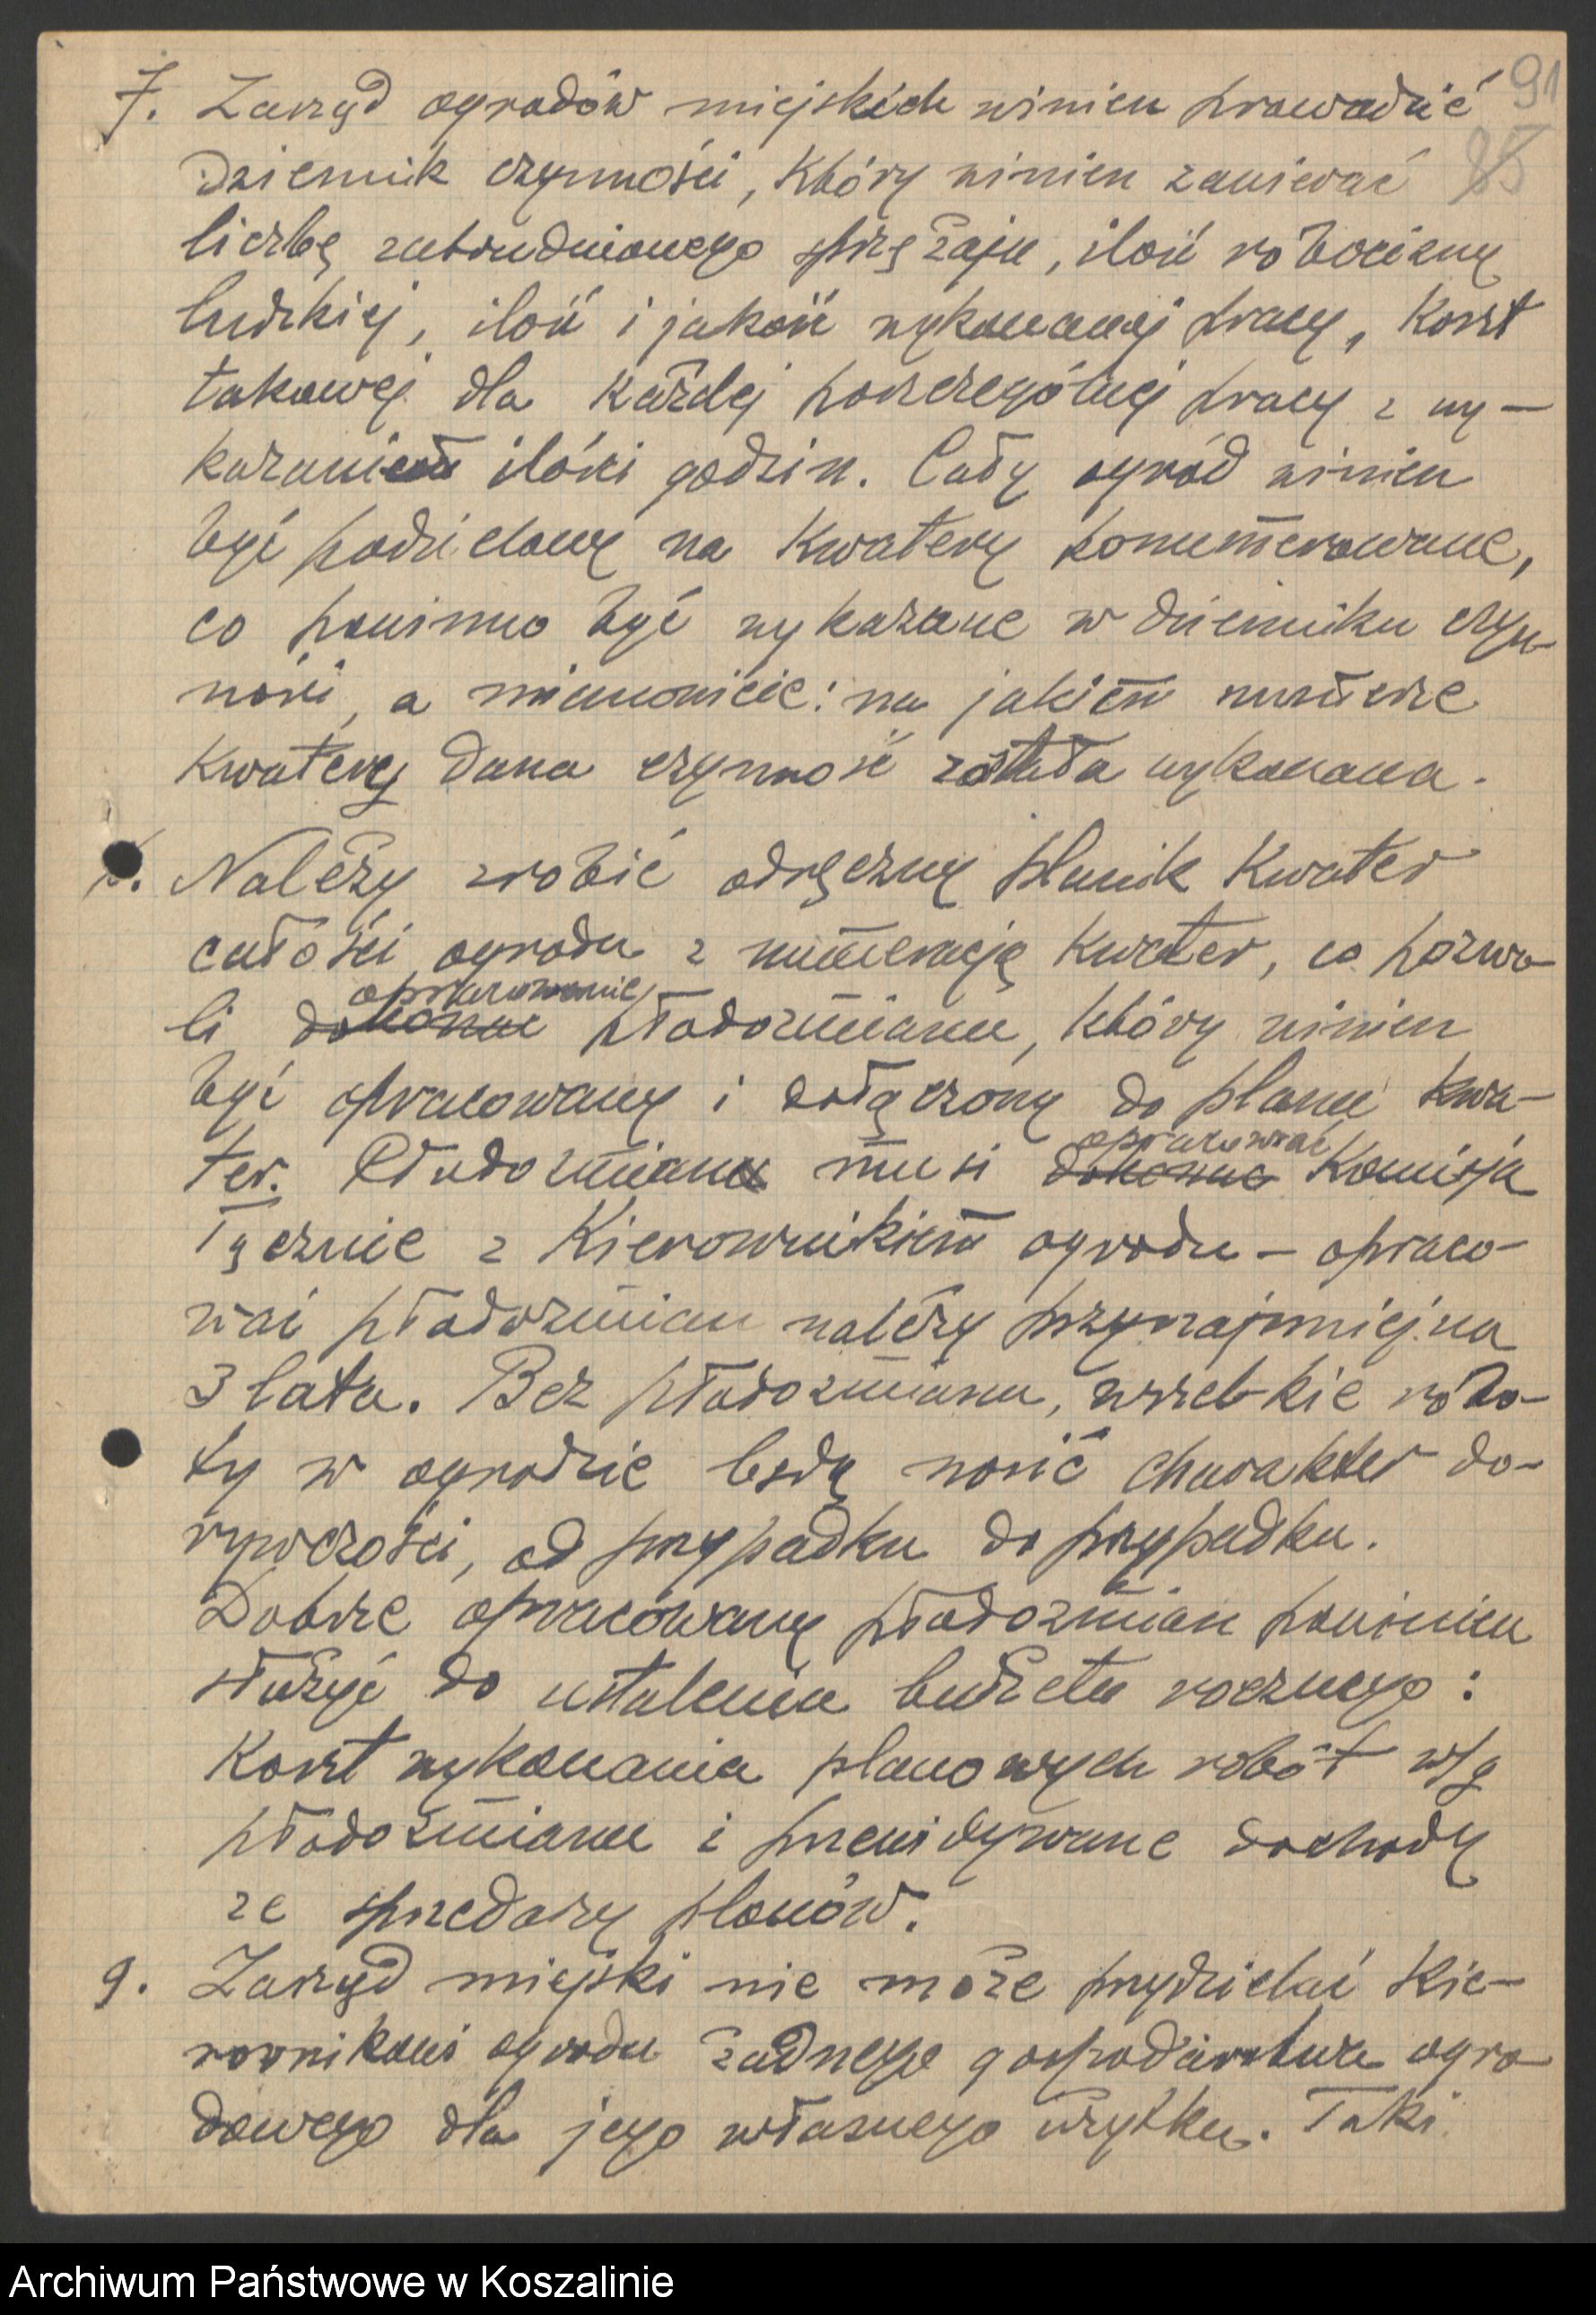 91
7. Zarząd ogrodów miejskich winien prowadzić
85
Dziennik czynności, który winien zawierać
liczbę zatrudnionego sprzężaju, ilość robocizny
ludzkiej, ilość i jakość wykonanej pracy, koszt
takowej dla każdej poszczególnej pracy z wy-
kazaniem ilości godzin. Cały ogród winien
być podzielony na kwatery ponumerowane,
co powinno być wykazane w dzienniku czyn-
ności, a mianowicie: na jakiem numerze
kwatery dana czynność została wykonana.
8. Należy zrobić odręczny planik kwater
całości ogrodu z numeracją kwater, co pozwo-
opracowanie
li dokonać płodozmianu, który winien
być opracowany i dołączony do planu kwa-
opracować
ter. Płodozmian musi dokonać Komisja
łącznie z Kierownikiem ogrodu - opraco-
wać płodozmian należy przynajmniej na
3 lata. Bez płodozmianu, wszelkie robo-
ty w ogrodzie będą nosić charakter do-
rywczości, od przypadku do przypadku.
Dobrze opracowany płodozmian powinien
służyć do ustalenia budżetu rocznego:
Koszt wykonania planowych robót w/g
płodozmianu i przewidywane dochody
ze sprzedaży plonów.
9. Zarząd miejski nie może przydzielać Kie-
rownikowi ogrodu żadnego gospodarstwa ogro-
dowego dla jego własnego użytku. Taki
Archiwum Państwowe w Koszalinie